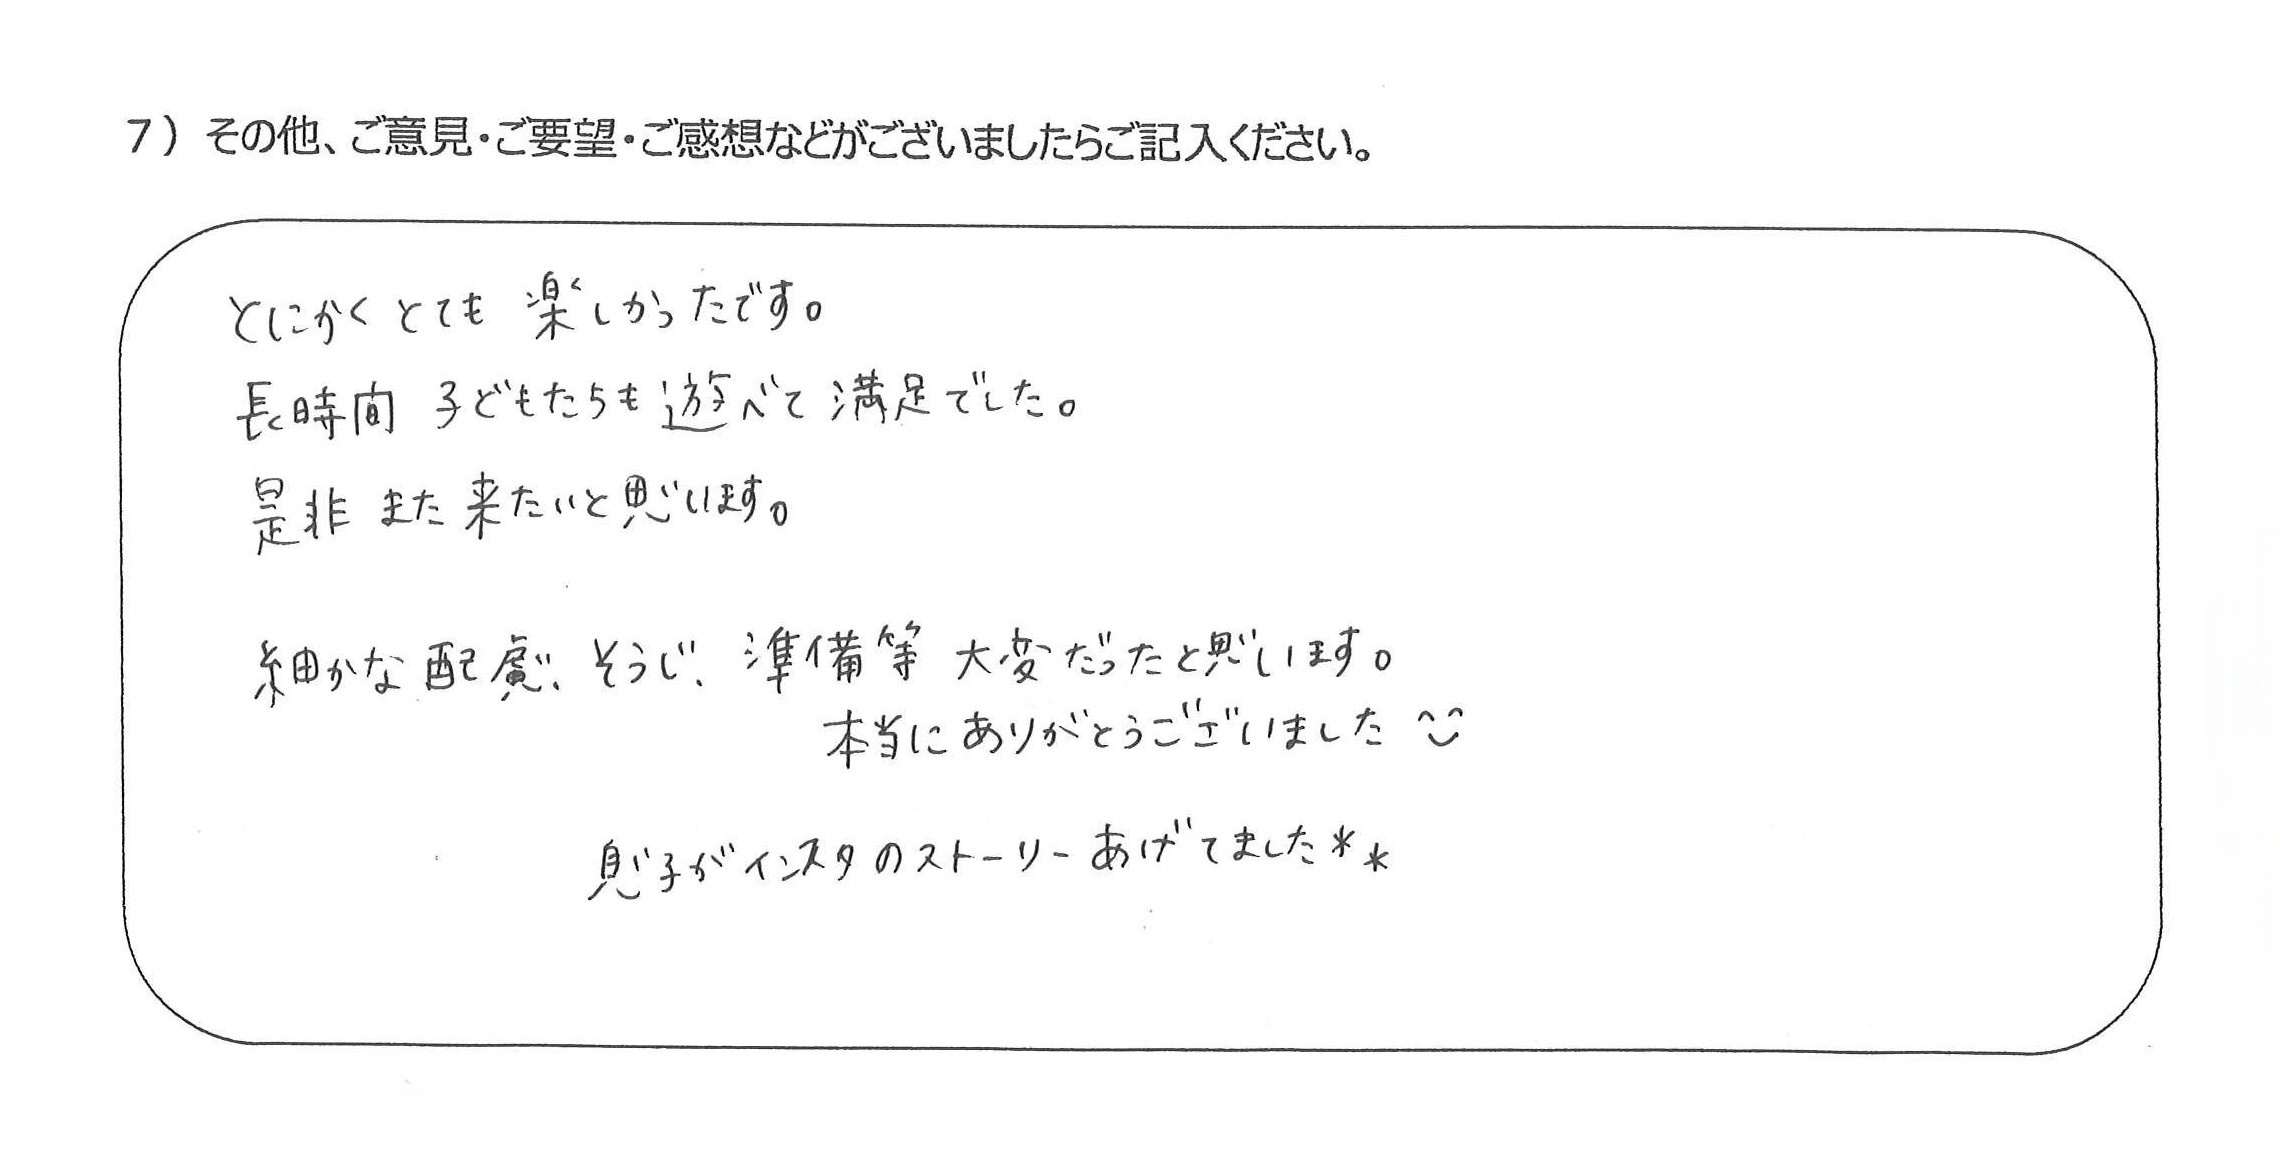 7）その他、ご意見・ご要望・ご感想などがございましたらご記入ください。
とにかくとても 楽しかったです。
長時間 子どもたちも遊べて満足でした。
是非 また 来たいと思います。
細かな配慮、そうじ、準備等 大変だったと思います。
本当にありがとうございました
息子がインスタのストーリーあげてました＊＊